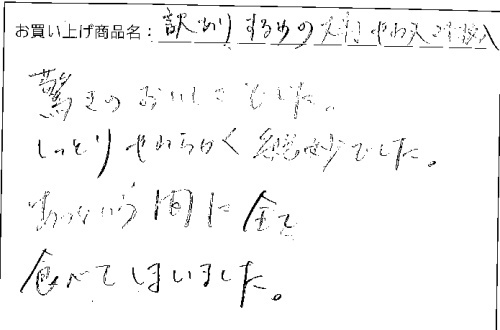 お買い上げ商品名：訳あり するめの天ぷら やわ天 入
驚きのおいしさでした。
しっとりやわらかく絶妙でした。
あっという間に全て
食べてしまいました。